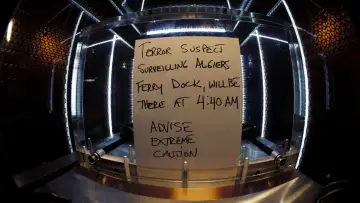 TERROR SUSPECT
SURVEILLING ALGIERS
FERRY DOCK, WILL BE
THERE AT 4:40 AM
ADVISE
EXTREME
CAUTION